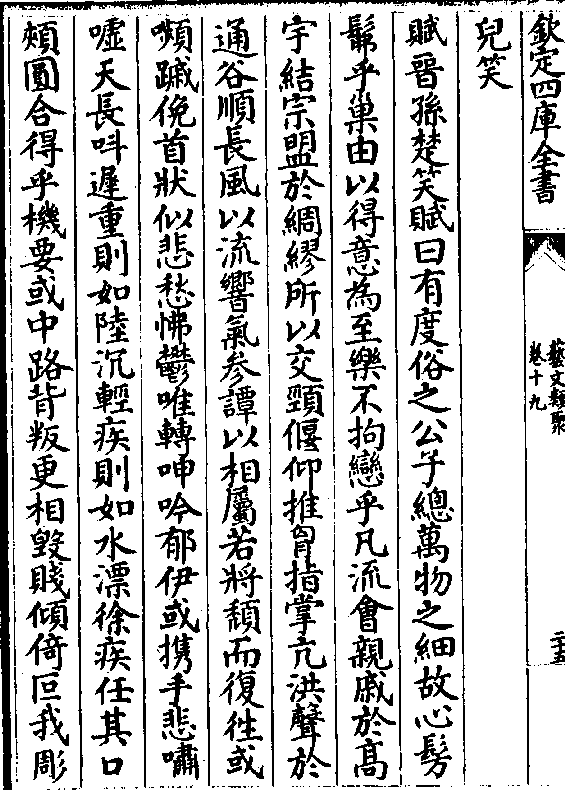 欽定四庫全書
藝文類聚
卷十九
二十五
兒笑
賦晉孫楚笑賦曰有度俗之公子總萬物之細故心髣
髴乎巢由以得意為至樂不拘戀乎凡流會親戚於髙
宇結宗盟於綢繆所以交頸偃仰推胷指掌亢洪聲於
通谷順長風以流響氣參譚以相屬若將頹而復徃或
嚬蹴俛首狀似悲愁怫鬱唯轉呻吟郁伊或携手悲嘯
嘘天長呌遲重則如陸沉輕疾則如水漂徐疾任其口
頰圓合得乎機要或中路背叛更相毀賤傾倚叵我彫